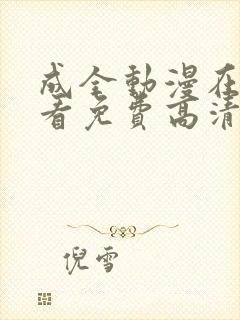 成全動漫在
看免費高清
倪雪